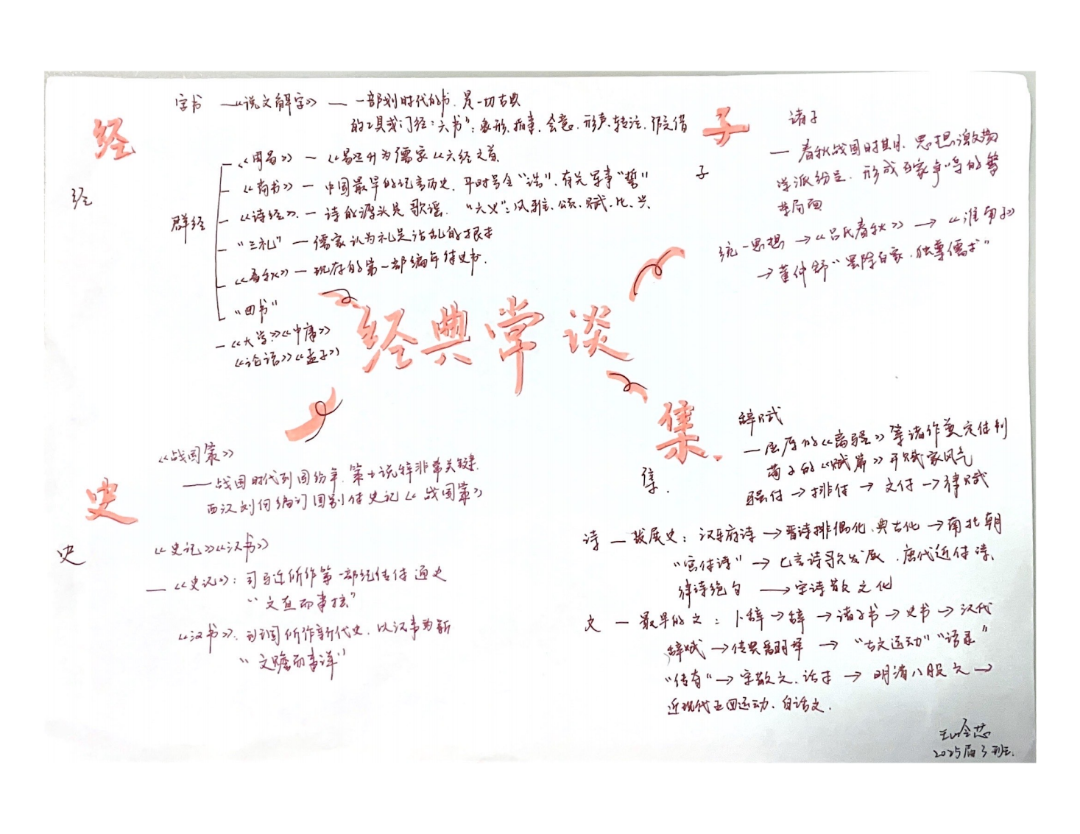 经典常谈
经
经
字书 —《说文解字》— 一部划时代的书,是一切古典
的工具或门径:"六书":象形,指事,会意,形声,转注,假借
群经
《周易》—
《尚书》— 中国最早的记言历史,平时号令"诰",有关军事"誓"
《诗经》— 诗的源头是歌谣. "六义":风、雅、颂、赋、比、兴
"三礼" — 儒家认为礼是治乱的根本
《春秋》— 现存的第一部编年体史书.
"四书"
—《大学》《中庸》
《论语》《孟子》
子
子
诸子
— 春秋战国时期,思想激荡
学派纷呈,形成百家争鸣的繁
荣局面
统一思想 →《吕氏春秋》→《淮南子》
→ 董仲舒"罢黜百家,独尊儒术"
史
史
《战国策》
— 战国时代列国纷争,
西汉刘向编订国别体史记《战国策》
《史记》《汉书》
—《史记》:司马迁所作第一部纪传体通史
"文直而事核"
《汉书》:班固所作断代史,以汉事为断
"文赡而事详"
集
集.
辞赋
— 屈原的《离骚》等诸作奠定体制
荀子的《赋篇》开赋家风气
骚体 → 排体 → 文体 → 律赋
诗 — 发展史:汉乐府诗 → 晋诗排偶化,典古化 → 南北朝
"宫体诗" → 七言诗歌发展,唐代近体诗,
律诗绝句 → 宋诗散文化
文 — 最早的文:卜辞 → 辞 → 诸子书 → 史书 → 汉代
辞赋 → 佛典翻译 → "古文运动""语录"
"传奇" → 宋散文、话本 → 明清八股文 →
近现代五四运动、白话文.
2025届3班.